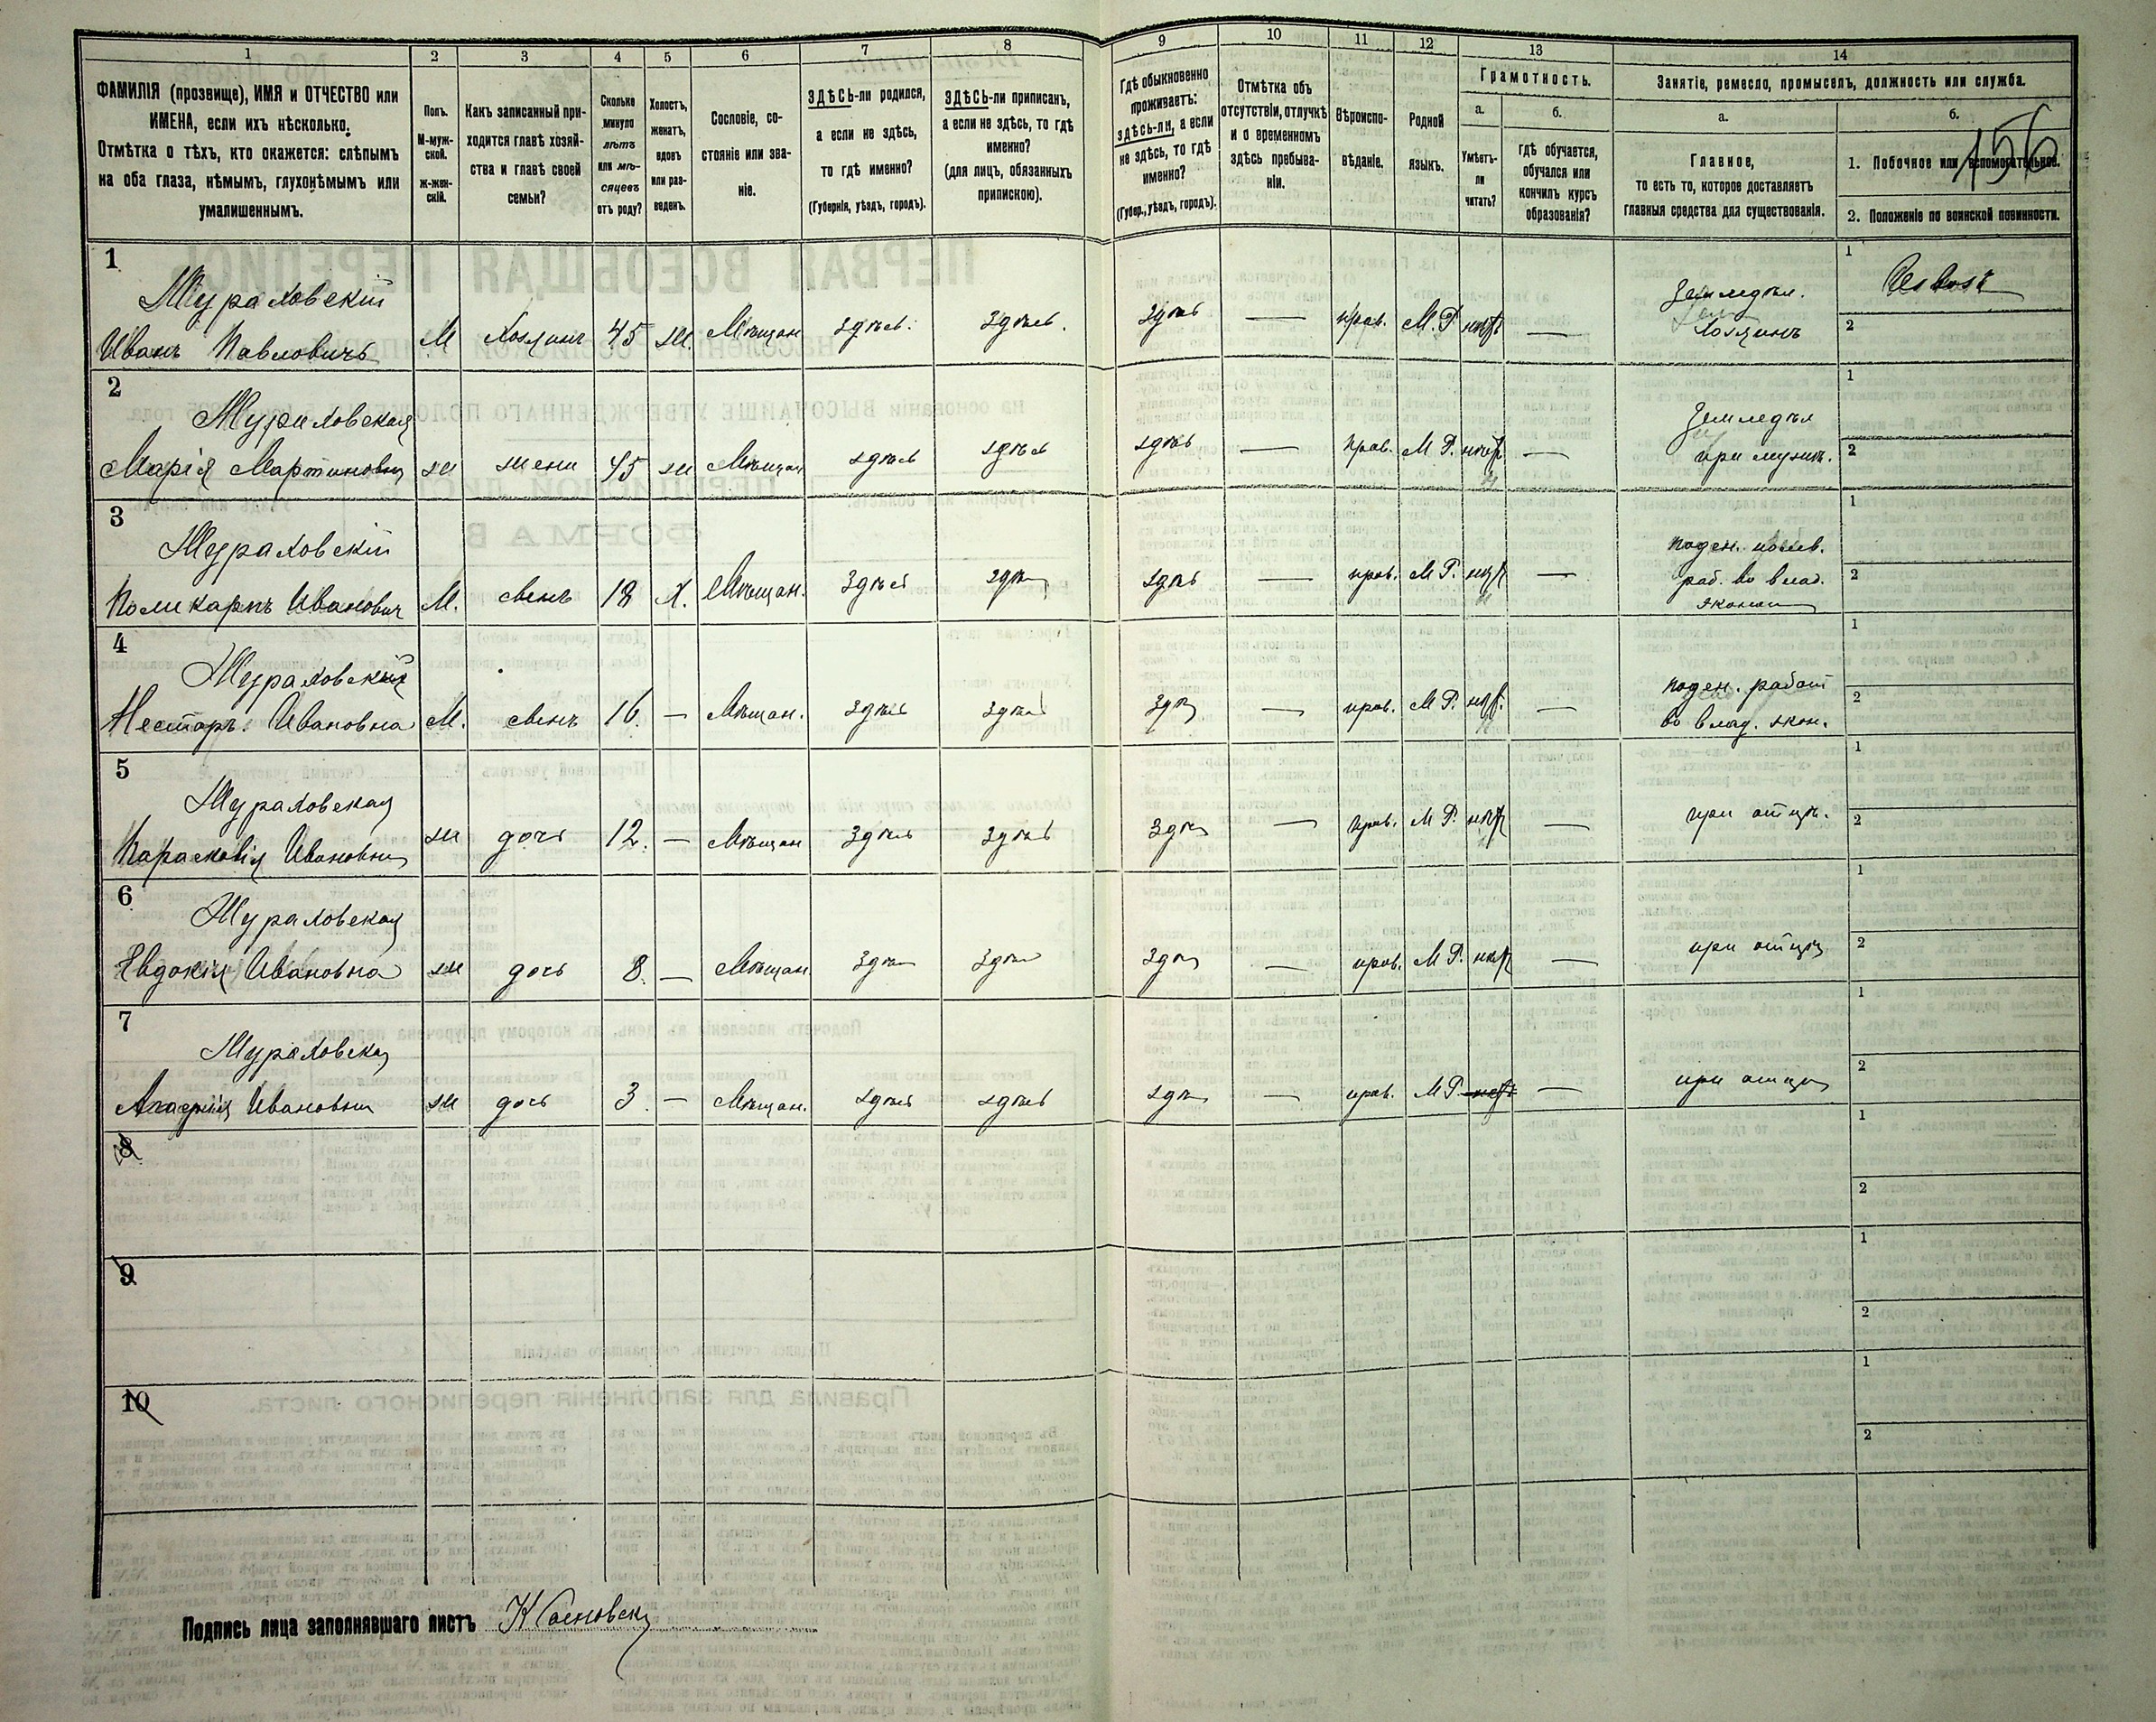 1 2 3 4 5 6 7 8 9 10 11 12 13 14
ФАМИЛІЯ (прозвище), ИМЯ и ОТЧЕСТВО или
ИМЕНА, если ихъ нѣсколько.
Отмѣтка о тѣхъ, кто окажется: слѣпымъ
на оба глаза, нѣмымъ, глухонѣмымъ или
умалишеннымъ.
Полъ.
М-муж-
ской.
ж-жен-
скій.
Какъ записанный при-
ходится главѣ хозяй-
ства и главѣ своей
семьи?
Сколько
минуло
лѣтъ
или мѣ-
сяцевъ
отъ роду?
Холостъ,
женатъ,
вдовъ
или раз-
веденъ.
Сословіе, со-
стояніе или зва-
ніе.
ЗДѢСЬ-ли родился,
а если не здѣсь,
то гдѣ именно?
(Губернія, уѣздъ, городъ).
ЗДѢСЬ-ли приписанъ,
а если не здѣсь, то гдѣ
именно?
(для лицъ, обязанныхъ
припискою).
Гдѣ обыкновенно
проживаетъ:
здѣсь-ли, а если
не здѣсь, то гдѣ
именно?
(Губер., уѣздъ, городъ).
Отмѣтка объ
отсутствіи, отлучкѣ
и о временномъ
здѣсь пребыва-
ніи.
Вѣроиспо-
вѣданіе.
Родной
языкъ.
Грамотность.
а.
Умѣетъ-
ли
читать?
б.
гдѣ обучается,
обучался или
кончилъ курсъ
образованія?
Занятіе, ремесло, промыселъ, должность или служба.
а.
Главное,
то есть то, которое доставляетъ
главныя средства для существованія.
б.
1. Побочное или вспомогательное.
2. Положеніе по воинской повинности.
156
1
Мураховскій
Иванъ Павловичъ М Хозяинъ 45 ж. Мѣщан здѣсь. здѣсь. здѣсь — прав. М.Р. нѣтъ —
Земледѣл.
Хозяинъ
1
2
2
Мураховская
Марія Мартиновна ж жена 45 ж Мѣщан здѣсь здѣсь здѣсь — прав. М Р. нѣтъ —
Земледѣл
при мужѣ.
1
2
3
Мураховскій
Поликарпъ Иванович М. сынъ 18 Х. Мѣщан. здѣсь здѣсь здѣсь — прав. М Р. нѣт —
поден. полев.
раб. во влад.
эконом
1
2
4
Мураховскій
Несторъ. Ивановна М. сынъ 16. — Мѣщан. здѣсь здѣсь здѣсь — прав. М Р. нѣт. —
поден. работ
во влад. экон.
1
2
5
Мураховская
Парасковія Ивановна ж дочь 12. — Мѣщан здѣсь здѣсь здѣсь — прав. М Р. нѣт —
при отцѣ.
1
2
6
Мураховская
Евдокія Ивановна ж дочь 8. — Мѣщан. здѣсь здѣсь здѣсь — прав. М Р. нѣт —
при отцѣ
1
2
7
Мураховская
Ивановна ж дочь 3. — Мѣщан. здѣсь здѣсь здѣсь — прав. М Р. нѣтъ —
при отцѣ
1
2
8
1
2
9
1
2
10
1
2
Подпись лица заполнявшаго листъ